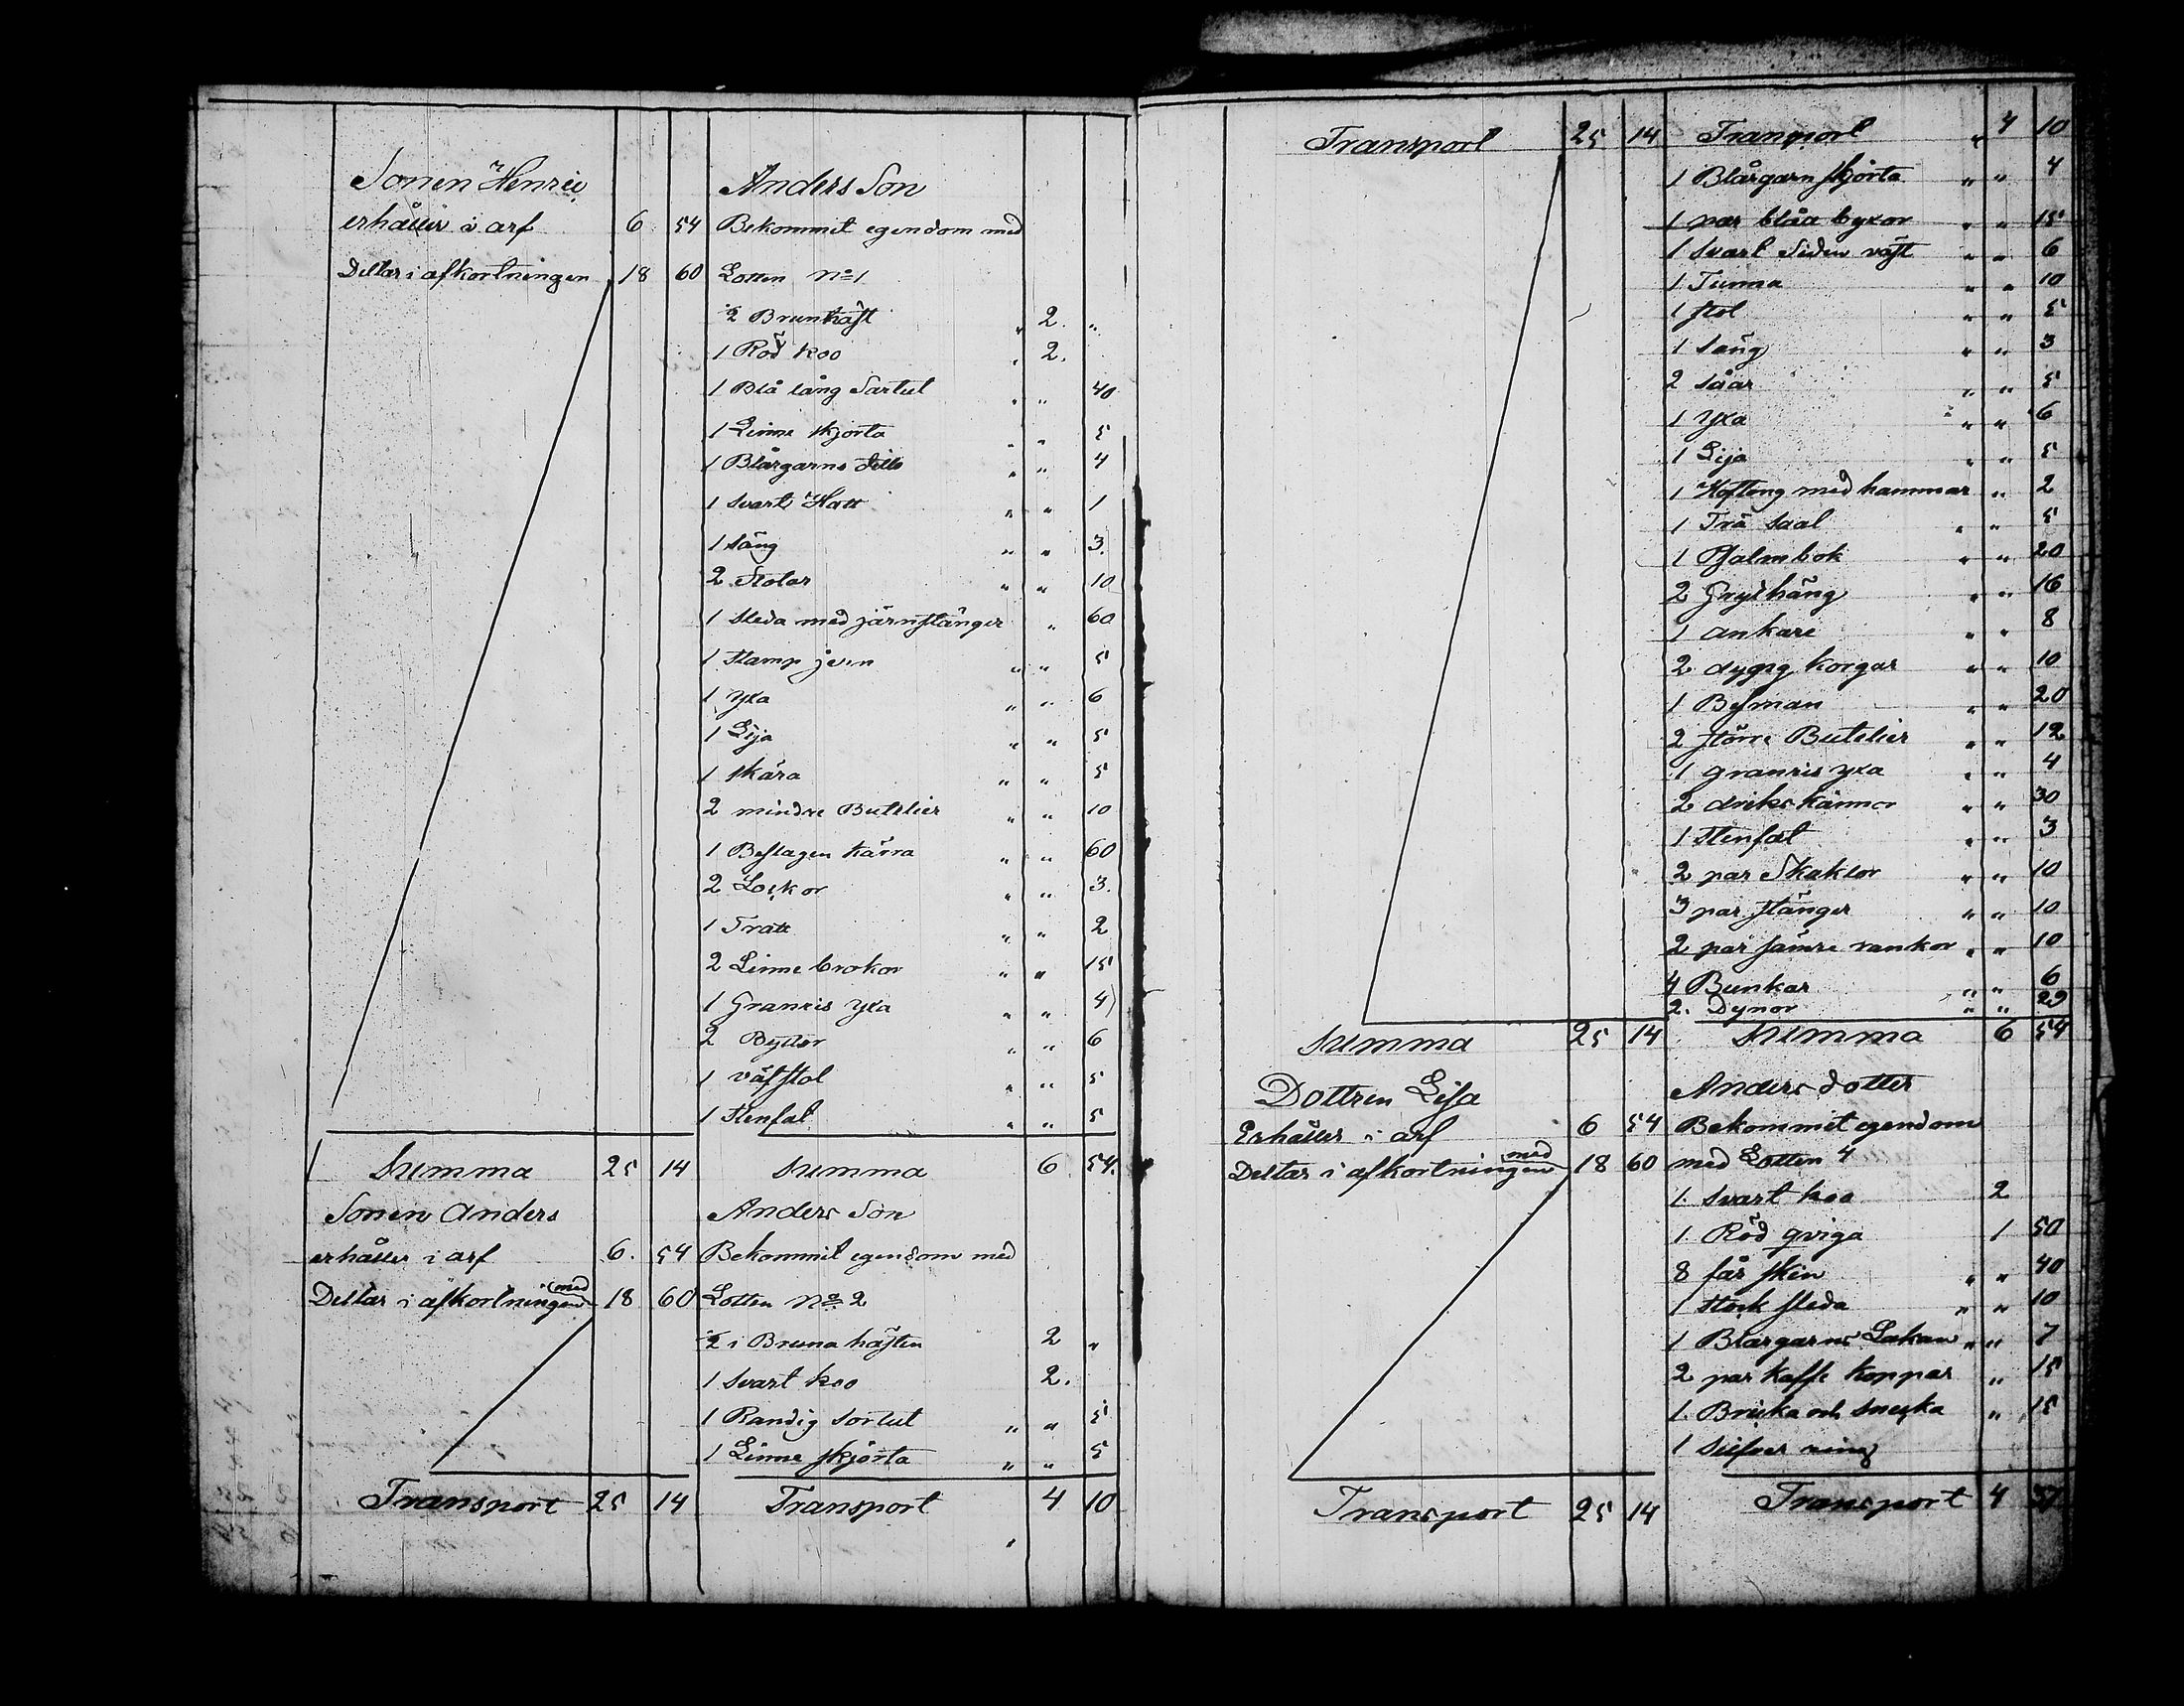 Sonen Henric Anders Son
erhåller i arf 6 54 Bekommit egendom med
Deltar i afkortningen 18 60 Lotten No 1
½ Brunhäst " 2. "
1 Röd koo " 2.
1 Blå lång Sartut " " 40
1 Linne skjorta " " 5
1 Blårgarns dito " " 4
1 Svart Hatt " " 1
1 Säng " " 3.
2 Stolar " " 10
1 Sleda med järnstänger " 60
1 Stamp jern " " 5
1 Yxa " " 6
1 Lija " " 5
1 Skära " " 5
2 mindre Butelier " " 10
1 Beslagen kärra " " 60
2 Lockor " " 3.
1 Tratt " " 2
2 Linne brokor " " 15
1 Granris yxa " " 4
2 Byttor " " 6
1 väfstol " " 5
1 Stenfat " " 5
Summa 25 14 Summa 6 54.
Sonen Anders Anders Son
erhåller i arf 6. 54 Bekommit egendom med
Deltar i afkortningen med 18 60 Lotten No 2
½ i Bruna hästen 2 "
1 Svart koo 2.
1 Randig Sortut " " 5
1 Linne skjorta " " 5
Transport 25 14 Transport 4 10
Transport 25 14 Transport " 4 10
1 Blårgarn skjorta " " 4
1 par blåa byxor " " 15
1 Svart Siden väst " " 6
1 Tunna " " 10
1 stol " " 5
1 Säng " " 3
2 såar " " 5
1 Yxa " " 6
1 Lija " " 5
1 Hoftång med hammar " 2
1 Trä Saal " " 5
1 Psalmbok " " 20
2 Grythäng " " 16
1 ankare " " 8
2 dyng korgar " " 10
1 Besman " " 20
2 större Butelier " " 12
1 granris yxa " " 4
2 dricks kannor " " 30
1 Stenfat " " 3
2 par Skaklor " " 10
3 par stänger " " 10
2 par sämre rankor " " 10
4 Bunkar " " 6
2. Dynor " " 29
Summa 25 14 Summa 6 54
Dottren Lisa Anders dotter
Erhåller i arf 6 54 Bekommit egendom
Deltar i afkortningen med 18 60 med Lotten 4
1. Svart koo 2
1. Röd qviga 1 50
8 får skin " " 40
1 Stock sleda " " 10
1 Blårgarns Lakan " " 7
2 par kaffe koppar " 15
1. Bricka och snecka " 15
1 Silfver ring
Transport 25 14 Transport 4 37